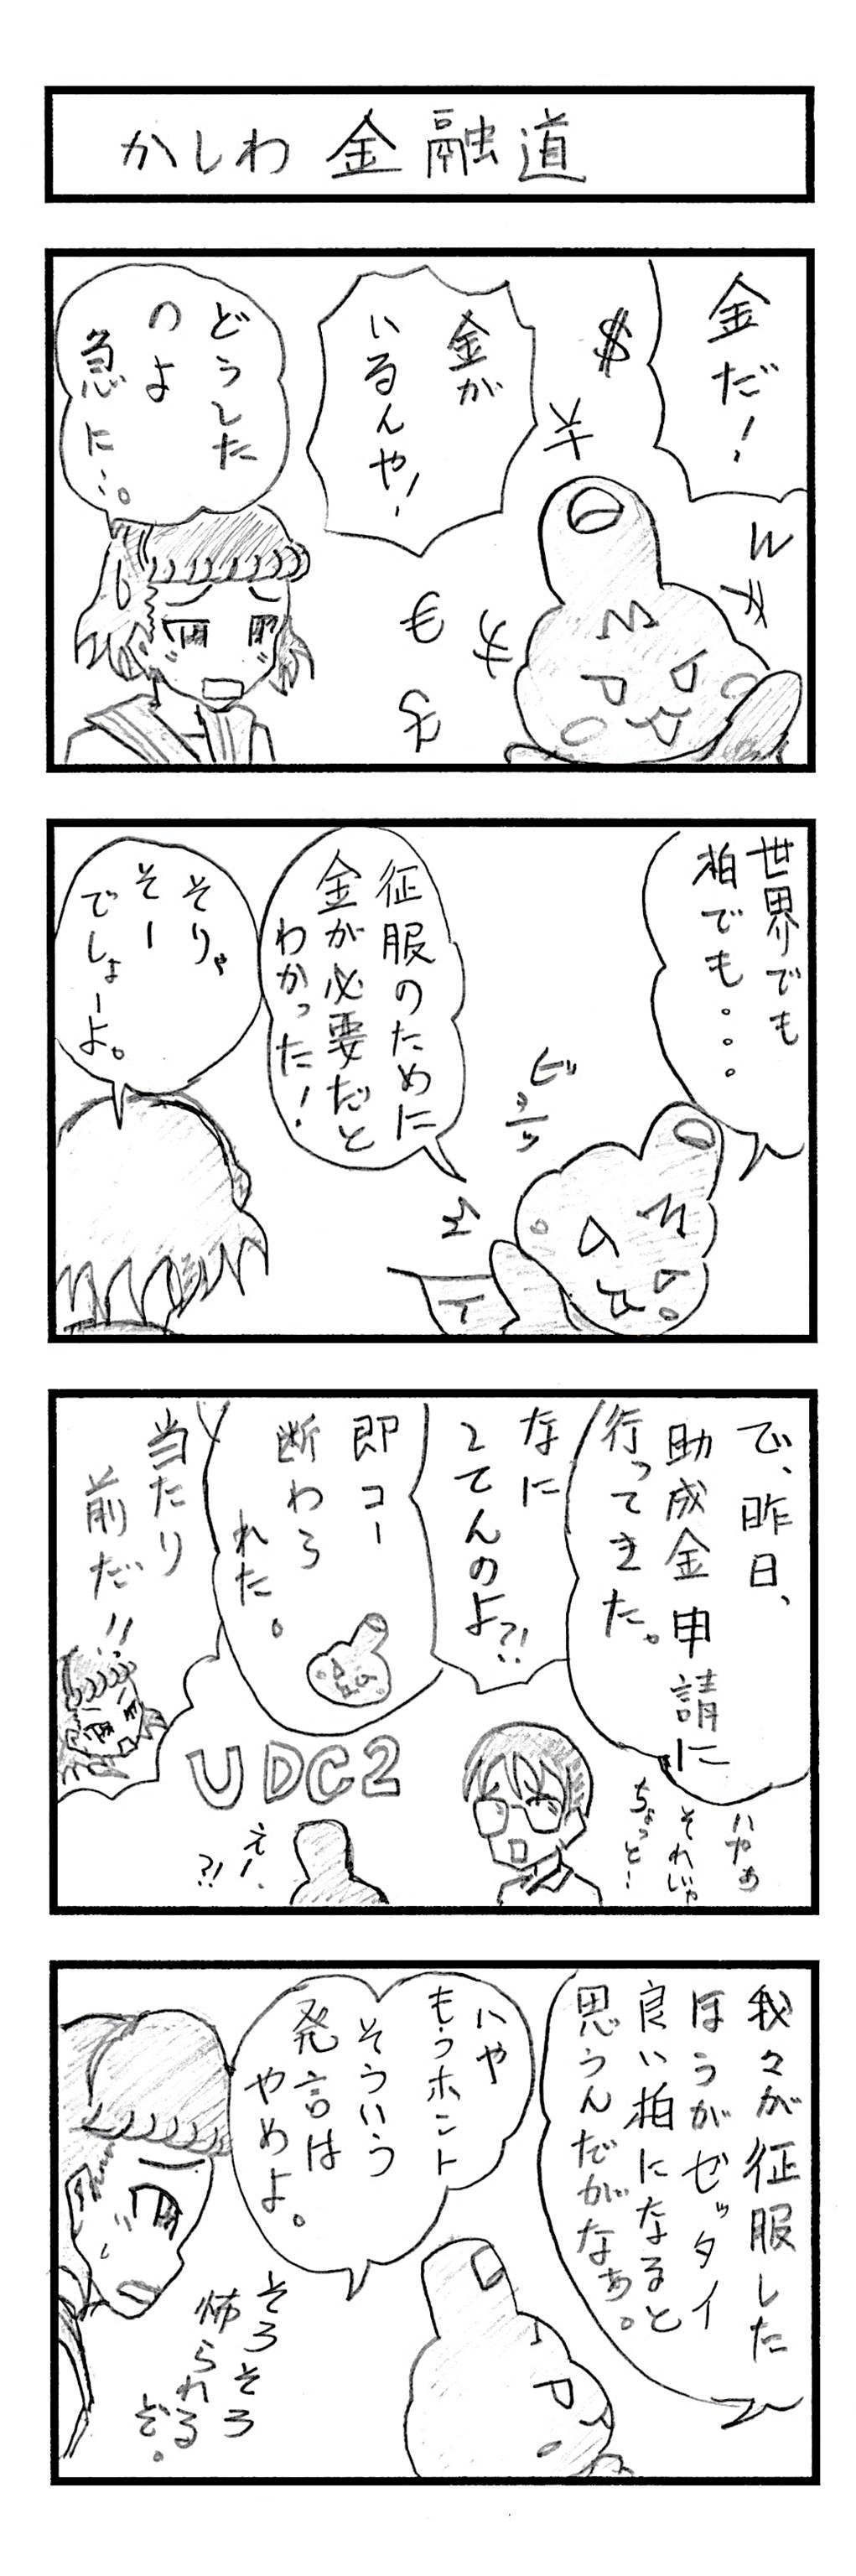 かしわ金融道
金だ!
$
¥
金が
いるんや!
どうした
のよ
急に…。
もも
世界でも
柏でも・・・。
征服のために
金が必要だと
わかった!
ビシッ
そりゃ
そー
でしょーよ。
で、昨日、
助成金申請に
行ってきた。
なに
してんのよ?!
即コー
断わら
れた。
当たり
前だ!!
いやぁ
それじゃ
ちょっと…
UDC2
えー、
?!
我々が征服した
ほうがゼッタイ
良い柏になると
思うんだがなぁ。
いや
もうホント
そういう
発言は
やめよ。
そろそろ
怖られる
ぞ。